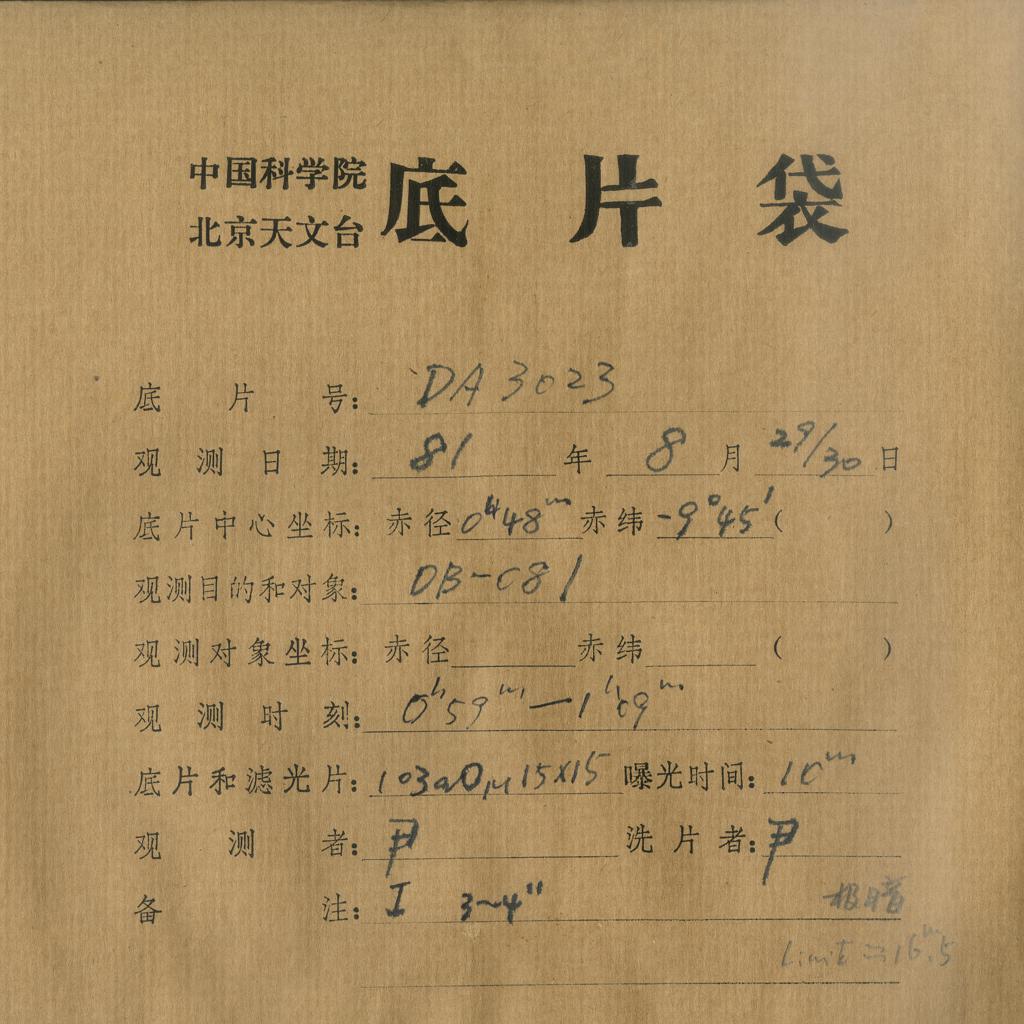 中国科学院
北京天文台 底片袋
底片号: DA 3023
观测日期: 81 年 8 月 29/30 日
底片中心坐标: 赤径 0ʰ48ᵐ 赤纬 -9°45′ ( )
观测目的和对象: DB-C81
观测对象坐标: 赤径 赤纬 ( )
观测时刻: 0ʰ59ᵐ—1ʰ09ᵐ
底片和滤光片: 103aO 15×15 曝光时间: 10ᵐ
观测者: 尹 洗片者: 尹
备注: I 3~4″ 极暗
Limit 16ᵐ.5